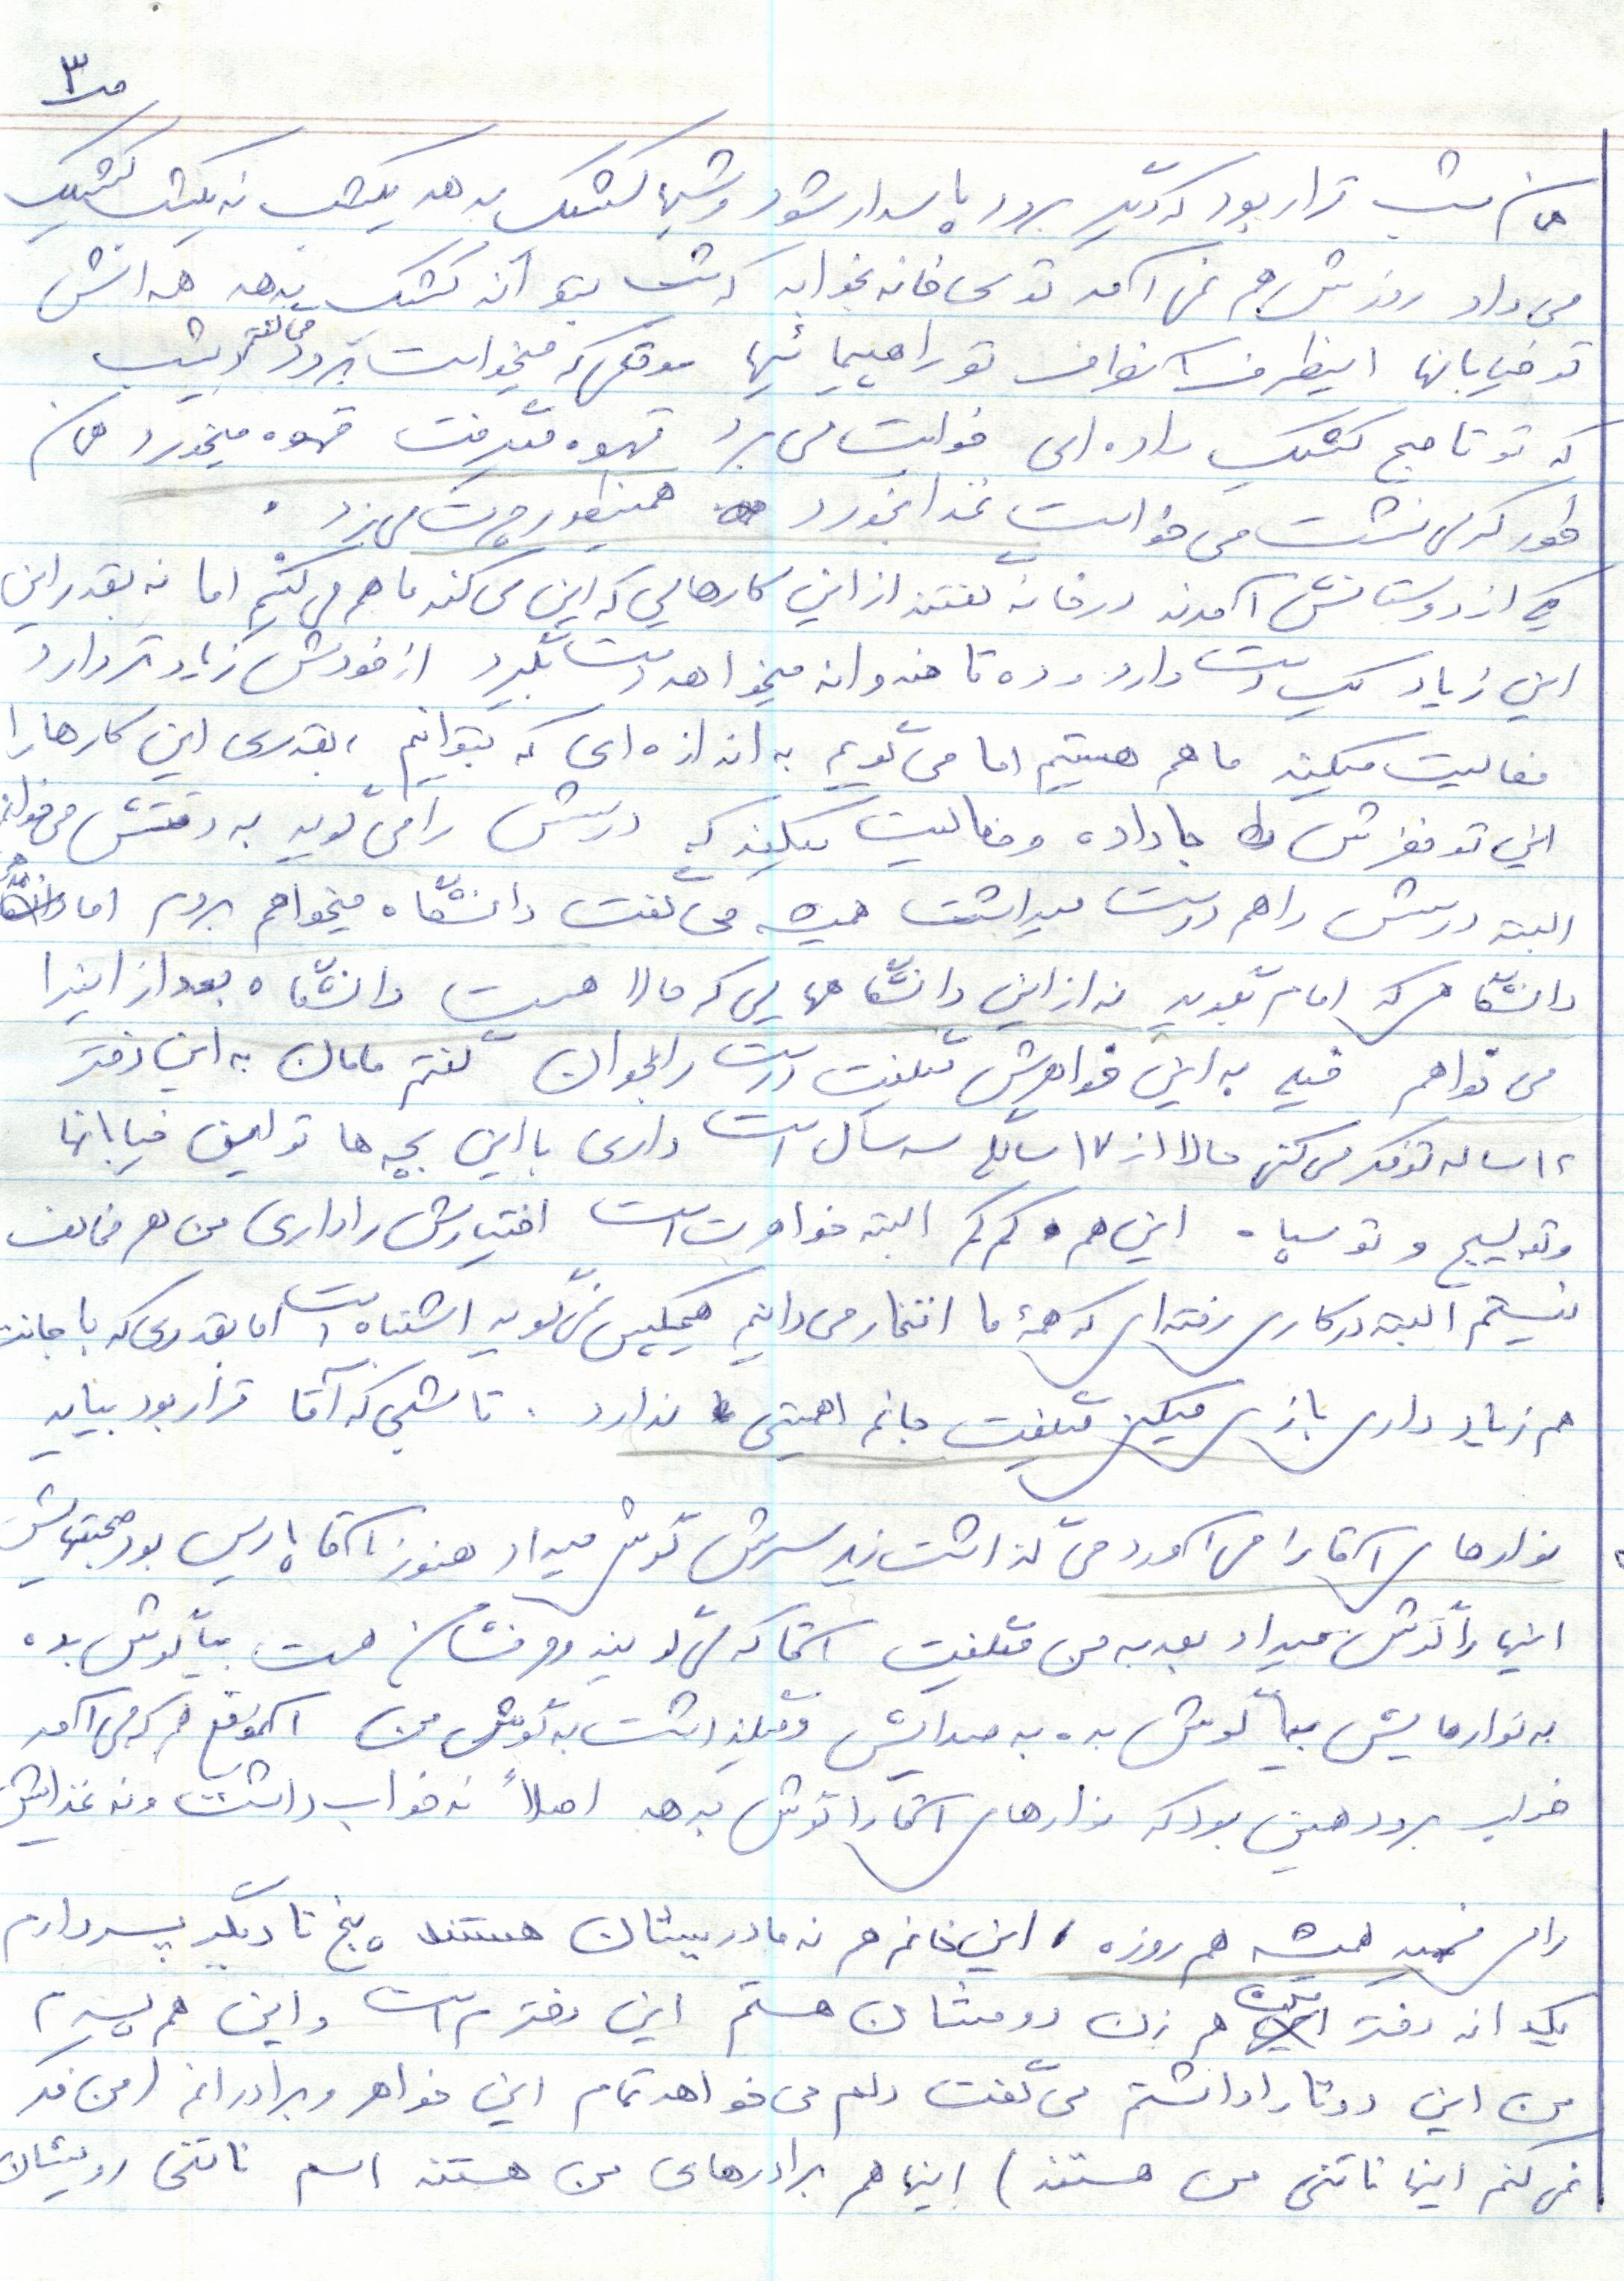 ص ۳
همان شب قرار بود که دیگر برود پاسدار شود و شبها کشیک بدهد یکشب نه یکشب کشیک
می داد روزش هم نمی آمد توی خانه بخوابد که شب بتواند کشک بدهد همه اش
تو خیابانها اینطرف آنطرف تو راهپیمائیها موقعی که میخواست برود می گفتم دیشب
که تو تا صبح کشیک داده ای خوابت می برد قهوه میگرفت قهوه میخورد همان
طور که می نشست می خواست غذا بخورد همینطور چرت می زد .
یکی از دوستانش آمدند در خانه گفتند از این کارهایی که این می کند ما هم می کنیم اما نه بقدر این
این زیاد یک دست دارد و ده تا هندوانه میخواهد دست بگیرد از خودش زیادتر دارد
فعالیت میکند ما هم هستیم اما می گویم به اندازه ای که بتوانیم ، بقدری این کارها را
این تو مغزش جا داده و فعالیت میکند که درسش را می گوید به دقتش می خواند
البته درسش را هم دوست میداشت همیشه می گفت دانشگاه میخواهم بروم اما
دانشگاهی که امام بگوید نه از این دانشگاههایی که حالا هست دانشگاه بعد از اینرا
می خواهم خیلی به این خواهرش میگفت درست را بخوان گفتم مامان به این دختر
۱۲ ساله تو فکر می کنی حالا از ۱۷ سالگی سه سال است داری با این بچه ها تو این خیابانها
و تو بسیج و تو سپاه این هم کم کم البته خواهرت است اختیارش را داری من هم مخالف
نیستم البته در کاری رفته ای که همۀ ما افتخار می دانیم هیچکس نمی گوید اشتباه است اما بقدری که با جانت
هم زیاد داری بازی میکنی میگفت جانم اهمیتی ندارد . تا شبی که آقا قرار بود بیاید
نوارهای آقا را می آورد می گذاشت زیر سرش گوش میداد هنوز آقا پاریس بود صحبتهایش
اینها را گوش میداد بعد به من میگفت آقا که می گویند روحشان هست بیا گوش بده
به نوارهایش بیا گوش بده به صدایش و میگذاشت به گوش من آنموقع هم که می آمد
خواب برود همین بود که نوارهای آقا را گوش بدهد اصلاً نه خواب داشت و نه غذایش
را می فهمید همیشه هم روزه ، این خانم هم نه مادریشان هستند پنج تا دیگر پسر دارم
یکدانه دختر هم زن دومشان هستم این دخترم است و این هم پسرم
من این دو تا را داشتم می گفت دلم می خواهد تمام این خواهر و برادرانم (من فکر
نمی کنم اینها ناتنی من هستند) اینها هم برادرهای من هستند اسم ناتنی رویشان